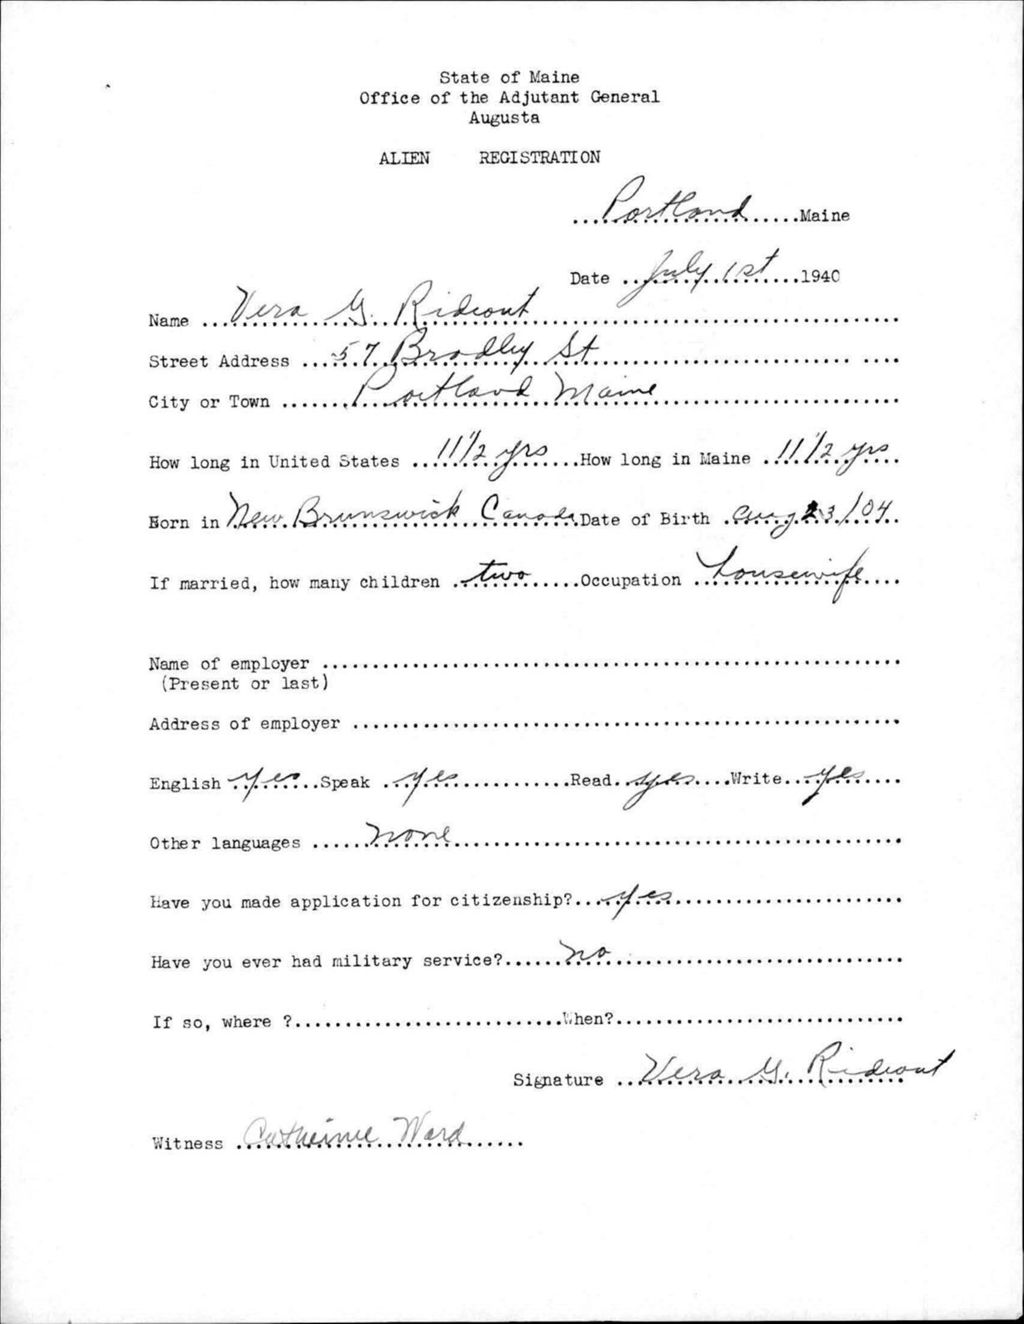 State of Maine
Office of the Adjutant General
Augusta
ALIEN REGISTRATION
...Portland...Maine
Date ...July 1st...1940
Name ...Vera G. Rideout...
Street Address ...57 Bradley St...
City or Town ...Portland Maine...
How long in United States ...11 1/2 yrs...How long in Maine ...11 1/2 yrs...
Born in New Brunswick Canada Date of Birth ...Aug 23/04...
If married, how many children ...two...Occupation ...housewife...
Name of employer ...
(Present or last)
Address of employer ...
English ...yes...Speak ...yes...Read...yes...Write...yes...
Other languages ...none...
Have you made application for citizenship?...yes...
Have you ever had military service?...no...
If so, where ?...When?...
Signature ...Vera G. Rideout
Witness ...Catherine Ward...